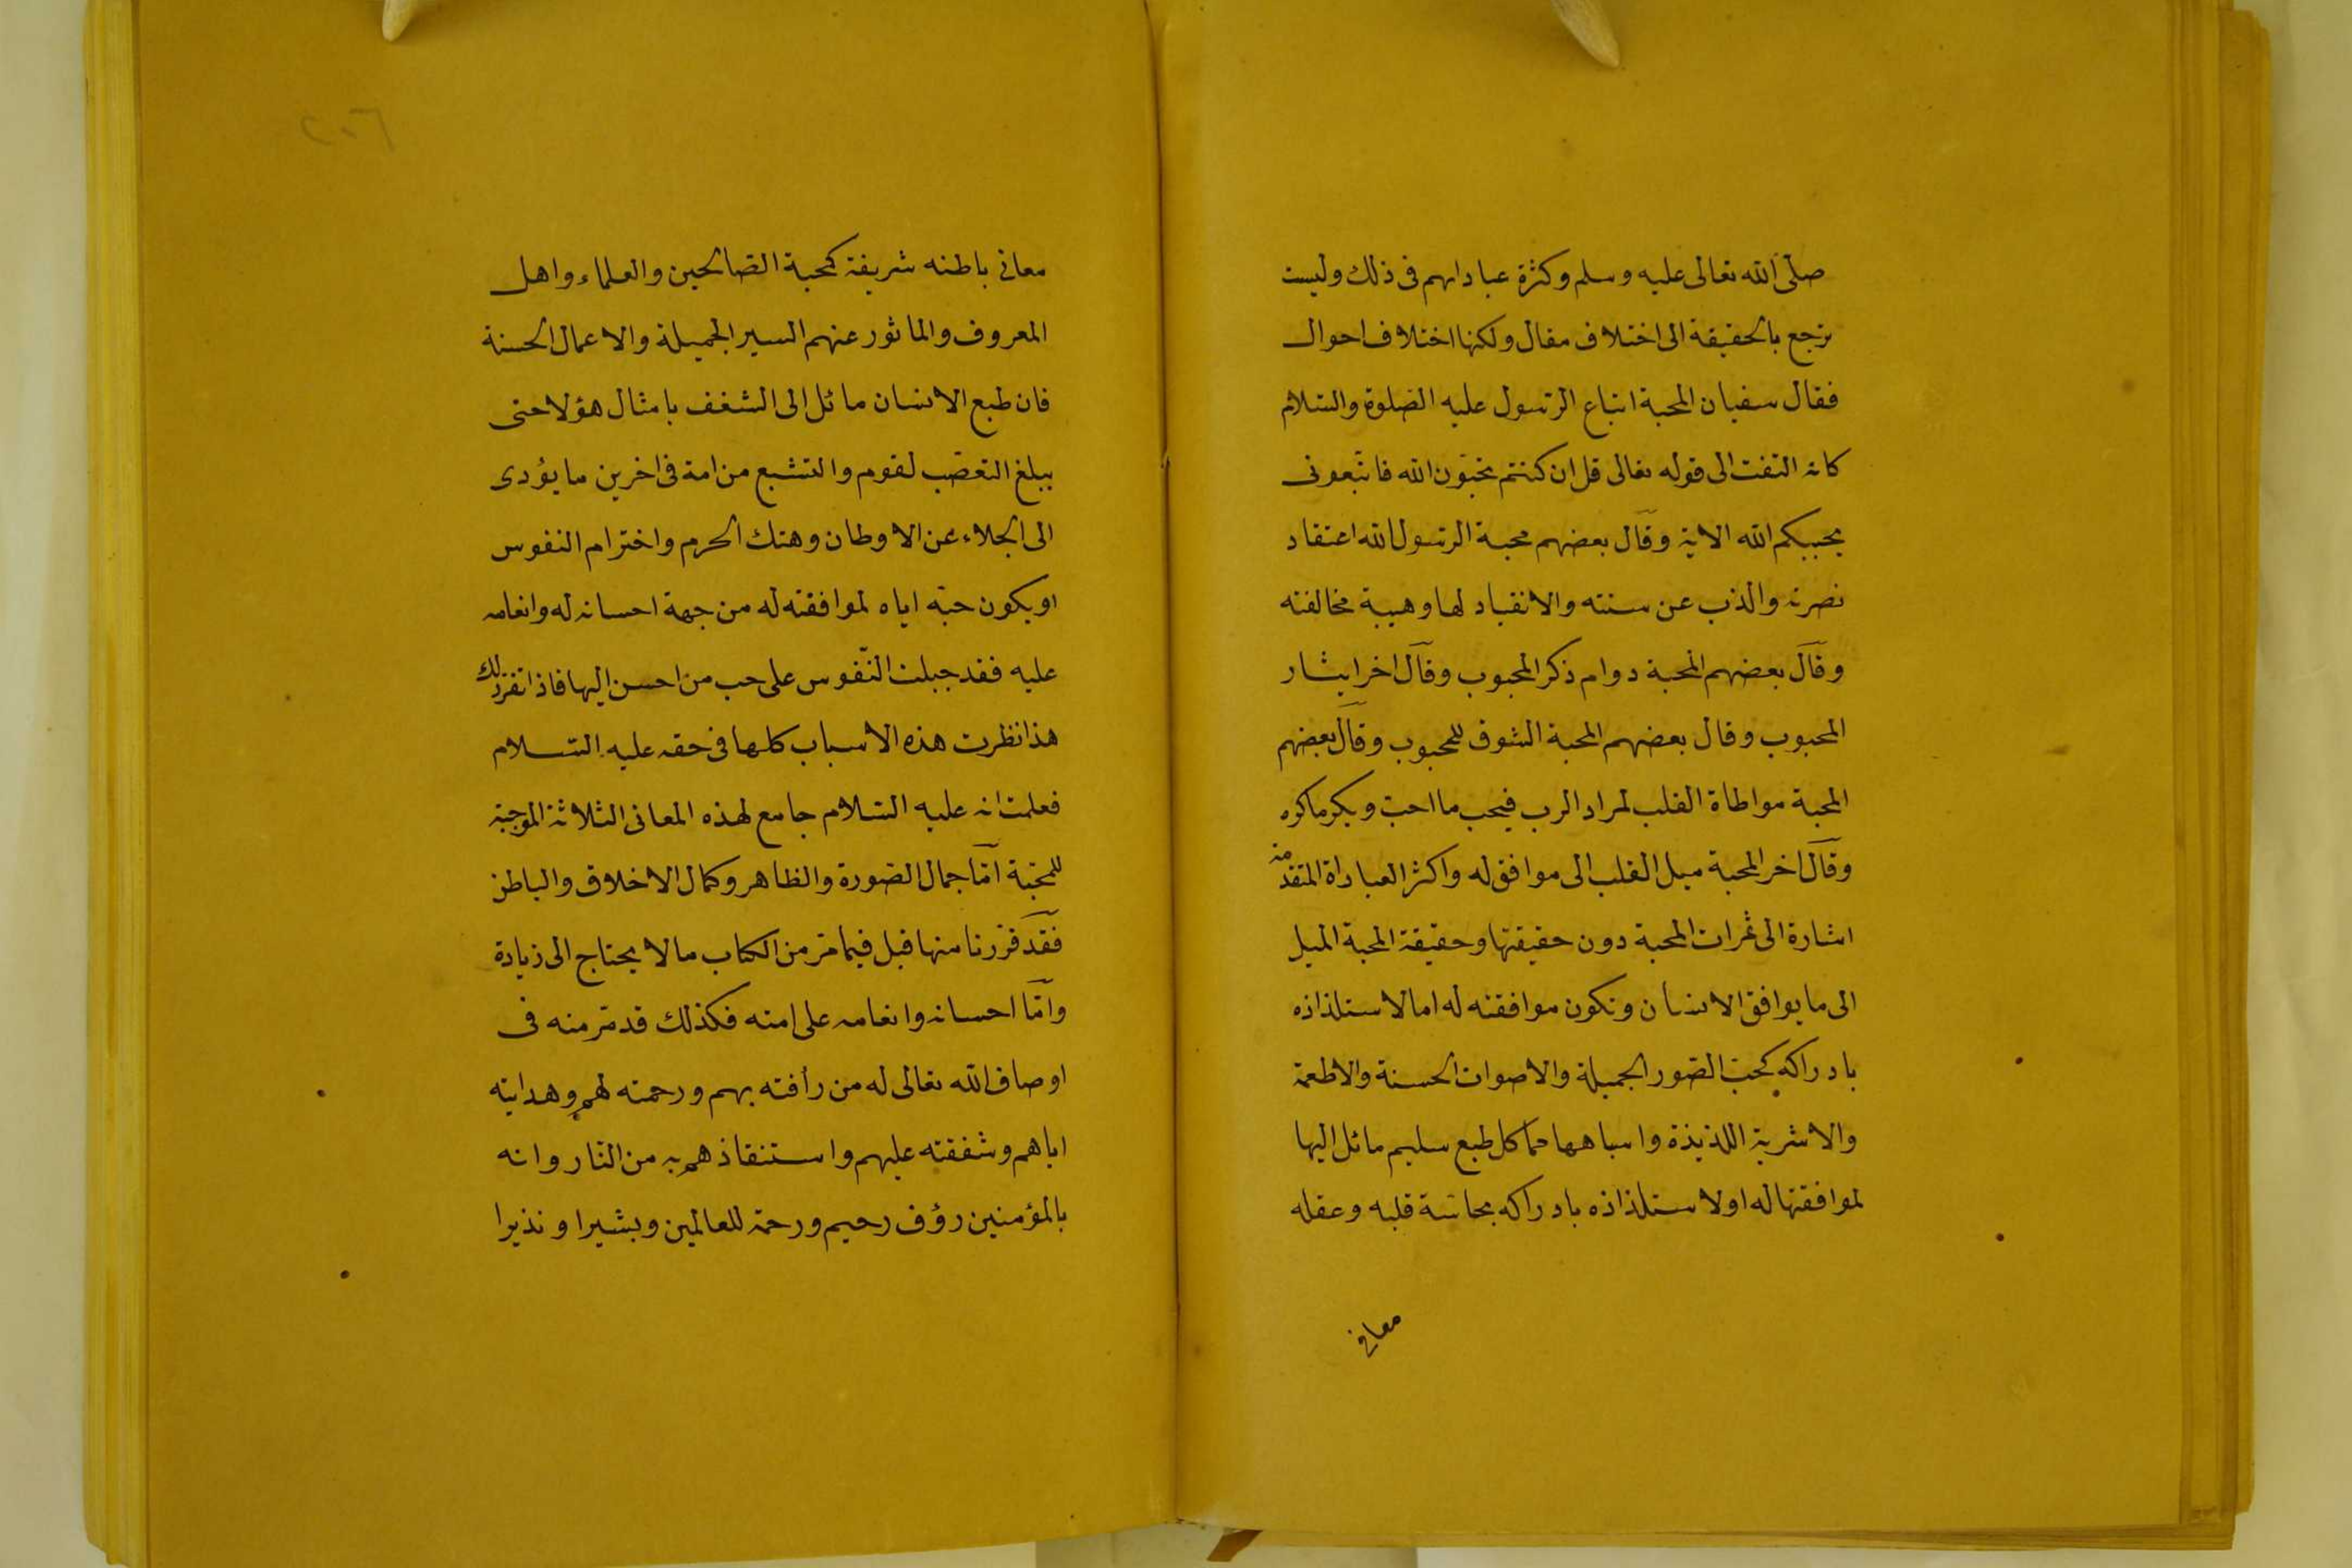 صلى الله تعالى عليه وسلم وكثرة عباداتهم فى ذلك وليست
ترجع بالحقيقة الى اختلاف مقال ولكنها اختلاف احوال
فقال سفيان المحبة اتباع الرسول عليه الصلوة والسلام
كانه التفت الى قوله تعالى قل ان كنتم تحبون الله فاتبعونى
يحببكم الله الاية وقال بعضهم محبة الرسول لله اعتقاد
نصرته والذب عن سنته والانقياد لها وهيبة مخالفته
وقال بعضهم المحبة دوام ذكر المحبوب وقال اخر ايثار
المحبوب وقال بعضهم المحبة الشوق للمحبوب وقال بعضهم
المحبة مواطاة القلب لمراد الرب فيحب ما احب ويكره ماكره
وقال اخر المحبة ميل القلب الى موافق له واكثر العباراة المتقدمة
اشارة الى ثمرات المحبة دون حقيقتها وحقيقة المحبة الميل
الى ما يوافق الانسان وتكون موافقته له اما لاستلذاذه
بادراكه كحب الصور الجميلة والاصوات الحسنة والاطعمة
والاشربة اللذيذة واسباهها مما كل طبع سليم مائل اليها
لموافقتها له اولاستلذاذه بادراكه بحاسة قلبه وعقله
معانى
٢٠٦
معانى باطنه شريفة كمحبة الصالحين والعلماء واهل
المعروف والماثور عنهم السير الجميلة والاعمال الحسنة
فان طبع الانسان مائل الى الشغف بامثال هؤلا حتى
يبلغ التعصب لقوم والتشيع من امة فى اخرين ما يؤدى
الى الجلاء عن الاوطان وهتك الحرم واخترام النفوس
او يكون حبه اياه لموافقته له من جهة احسانه له وانعامه
عليه فقد جبلت النفوس على حب من احسن اليها فاذا تقرر لك
هذا نظرت هذه الاسباب كلها فى حقه عليه السلام
فعلمت انه عليه السلام جامع لهذه المعانى الثلاثة الموجبة
للمحبة اما جمال الصورة والظاهر وكمال الاخلاق والباطن
فقد قررنا منها قبل فيما مر من الكتاب مالا يحتاج الى زيادة
واما احسانه وانعامه على امته فكذلك قد مر منه فى
اوصاف الله تعالى له من رأفته بهم ورحمته لهم وهدايته
اياهم وشفقته عليهم واستنقاذهم به من النار وانه
بالمؤمنين رؤف رحيم ورحمة للعالمين وبشيرا ونذيرا